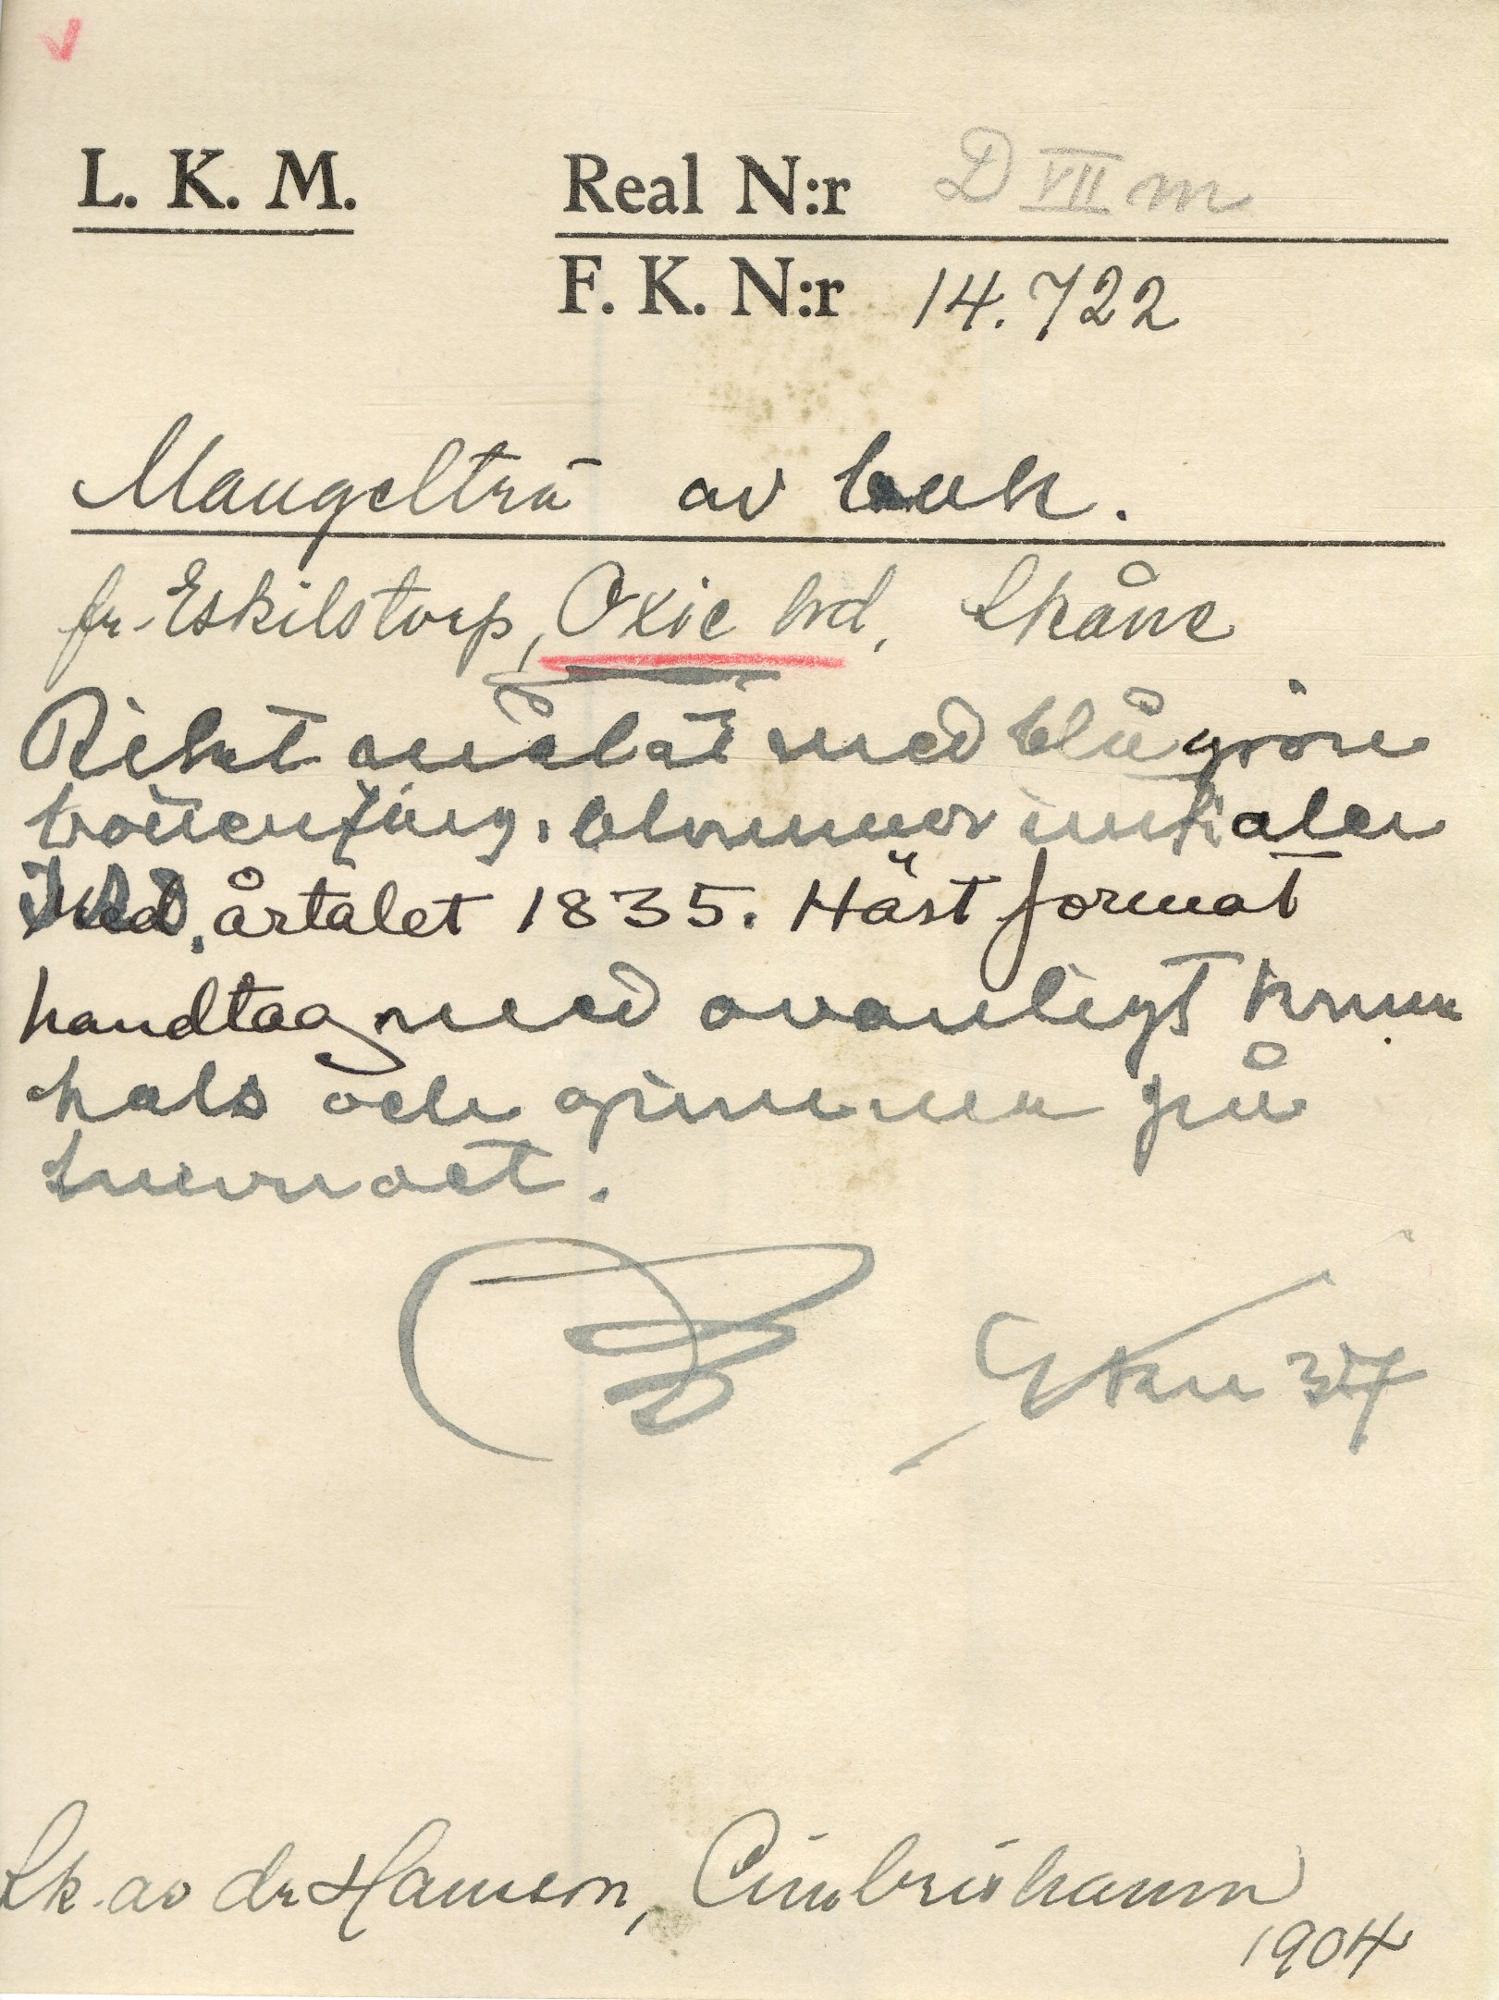 L. K. M.
Real N:r D VII m
F. K. N:r 14.722
Mangelträ av bok.
fr. Eskilstorp, Oxie hrd, Skåne
Rikt målat med blågrön
bottenfärg, blommor initialer
årtalet 1835. Häst format
handtag med ovanligt krum
hals och öppen på
huvudet.
37
Sk. av dr Hanson, Cimbrishamn
1904